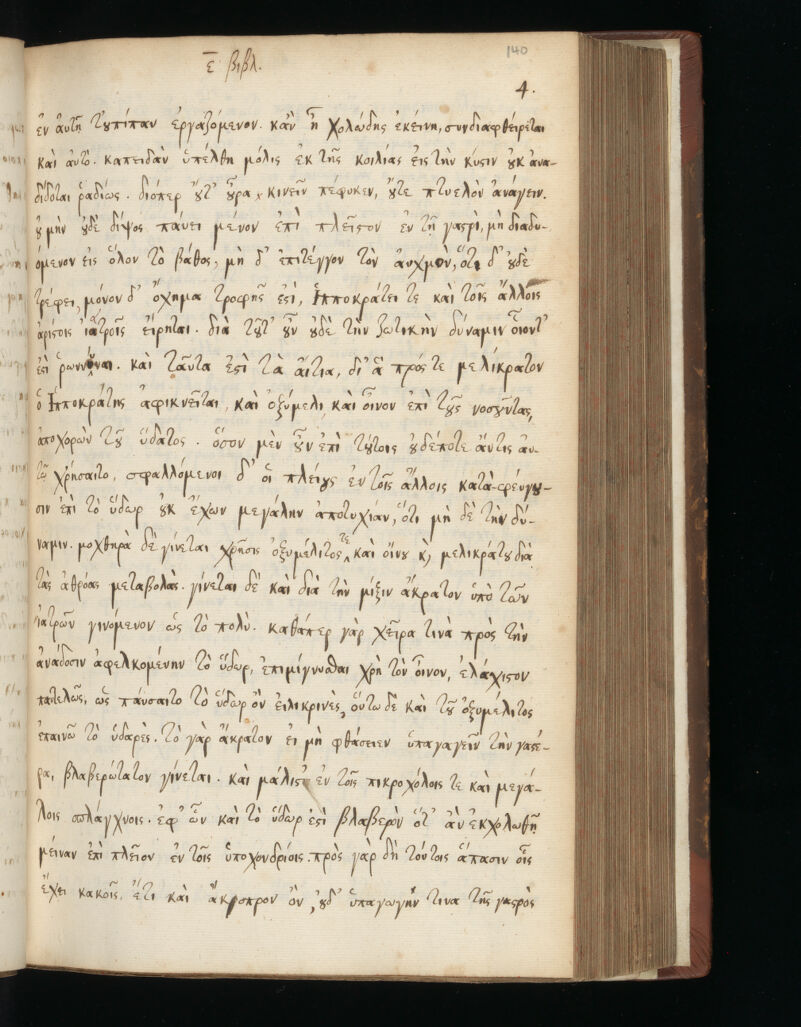 140
ε̄ βιβλ.
4.
ἐν αὐτῇ τουπίπαν ἐργαζόμενον. κἂν ᾖ χολώδης ἐκείνη, συνδιαφθείρεται
καὶ αὐτὸ. καπειδὰν ὑπέλθῃ μόλις ἐκ τῆς κοιλίας εἰς τὴν κύσιν οὐκ ἀνα-
δίδοται ῥαδίως. διόπερ οὔτ' οὖρα κινεῖν πέφυκεν, οὔτε πτυελὸν ἀνάγειν.
οὐ μὴν οὐδὲ δίψος παύει μένον ἐπὶ πλεῖστον ἐν τῇ γαστρὶ, μὴ διαδυ-
όμενον εἰς ὅλον τὸ βάθος, μὴ δ' ἐπιτέγγον τὸν αὐχμὸν, ὅτι δ' οὐδὲ
τρέφει, μόνον δ' ὄχημα τροφῆς ἐστὶ, Ἱπποκράτει τε καὶ τοῖς ἄλλοις
ἀρίστοις ἰατροῖς εἴρηται. διὰ τοῦτ' οὖν οὐδὲ τὴν ζωτικὴν δύναμιν οἷοντ'
ἐστὶ ῥωννύναι. καὶ ταῦτα ἐστὶ τὰ αἴτια, δι' ἃ πρός τε μελίκρατον
ὁ Ἱπποκράτης ἀφικνεῖται, καὶ ὀξύμελι, καὶ οἶνον ἐπὶ τοὺς νοσοῦντας,
ἀποχορῶν τοῦ ὕδατος. ὅσον μὲν οὖν ἐπὶ τούτοις οὐδέποτε ἄντις αὐ-
τῷ χρήσαιτο, σφαλλόμενοι δ' οἱ πλείους ἐν τοῖς ἄλλοις καταφεύγου-
σιν ἐπὶ τὸ ὕδωρ οὐκ ἔχων μεγάλην ἀποτυχίαν, ὅτι μὴ δὲ τὴν δύ-
ναμιν. μοχθηρὰ δὲ γίνεται χρῆσις ὀξυμέλιτος τε καὶ οἴνου κὶ μελικράτου διὰ
τὰς ἀθρόας μεταβολὰς. γίνεται δὲ καὶ διὰ τὴν μίξιν ἄκρατον ὑπὸ τῶν
ἰατρῶν γινόμενον ὡς τὸ πολὺ. καθάπερ γὰρ χεῖρα τινὰ πρὸς τὴν
ἀνάδοσιν ἀφελκομένην τὸ ὕδωρ, ἐπιμίγνυσθαι χρὴ τὸν οἶνον, ἐλάχιστον
παντελῶς, ὡς παύσαιτο τὸ ὕδωρ ὂν εἰλικρινὲς, οὕτω δὲ καὶ τοῦ ὀξυμέλιτος
ἐπαινῶ τὸ ὑδαρὲς. τὸ γὰρ ἄκρατον εἰ μὴ φθάσειεν ὑπαγαγεῖν τὴν γαστέ-
ρα, βλαβερώτατον γίνεται. καὶ μάλιστ' ἐν τοῖς πικροχόλοις τε καὶ μεγά-
λοις σπλάγχνοις. ἐφ' ὧν καὶ τὸ ὕδωρ ἐστὶ βλαβερὸν ὅτ' ἂν ἐκχολωθῇ
μείναν ἐπὶ πλεῖον ἐν τοῖς ὑποχονδρίοις. πρὸς γὰρ δὴ τούτοις ἅπασιν οἷς
ἔχει κακοῖς. ἔτι καὶ ἄκοπρον ὂν, οὐδ' ὑπαγωγήν τινα τῆς γαστρὸς